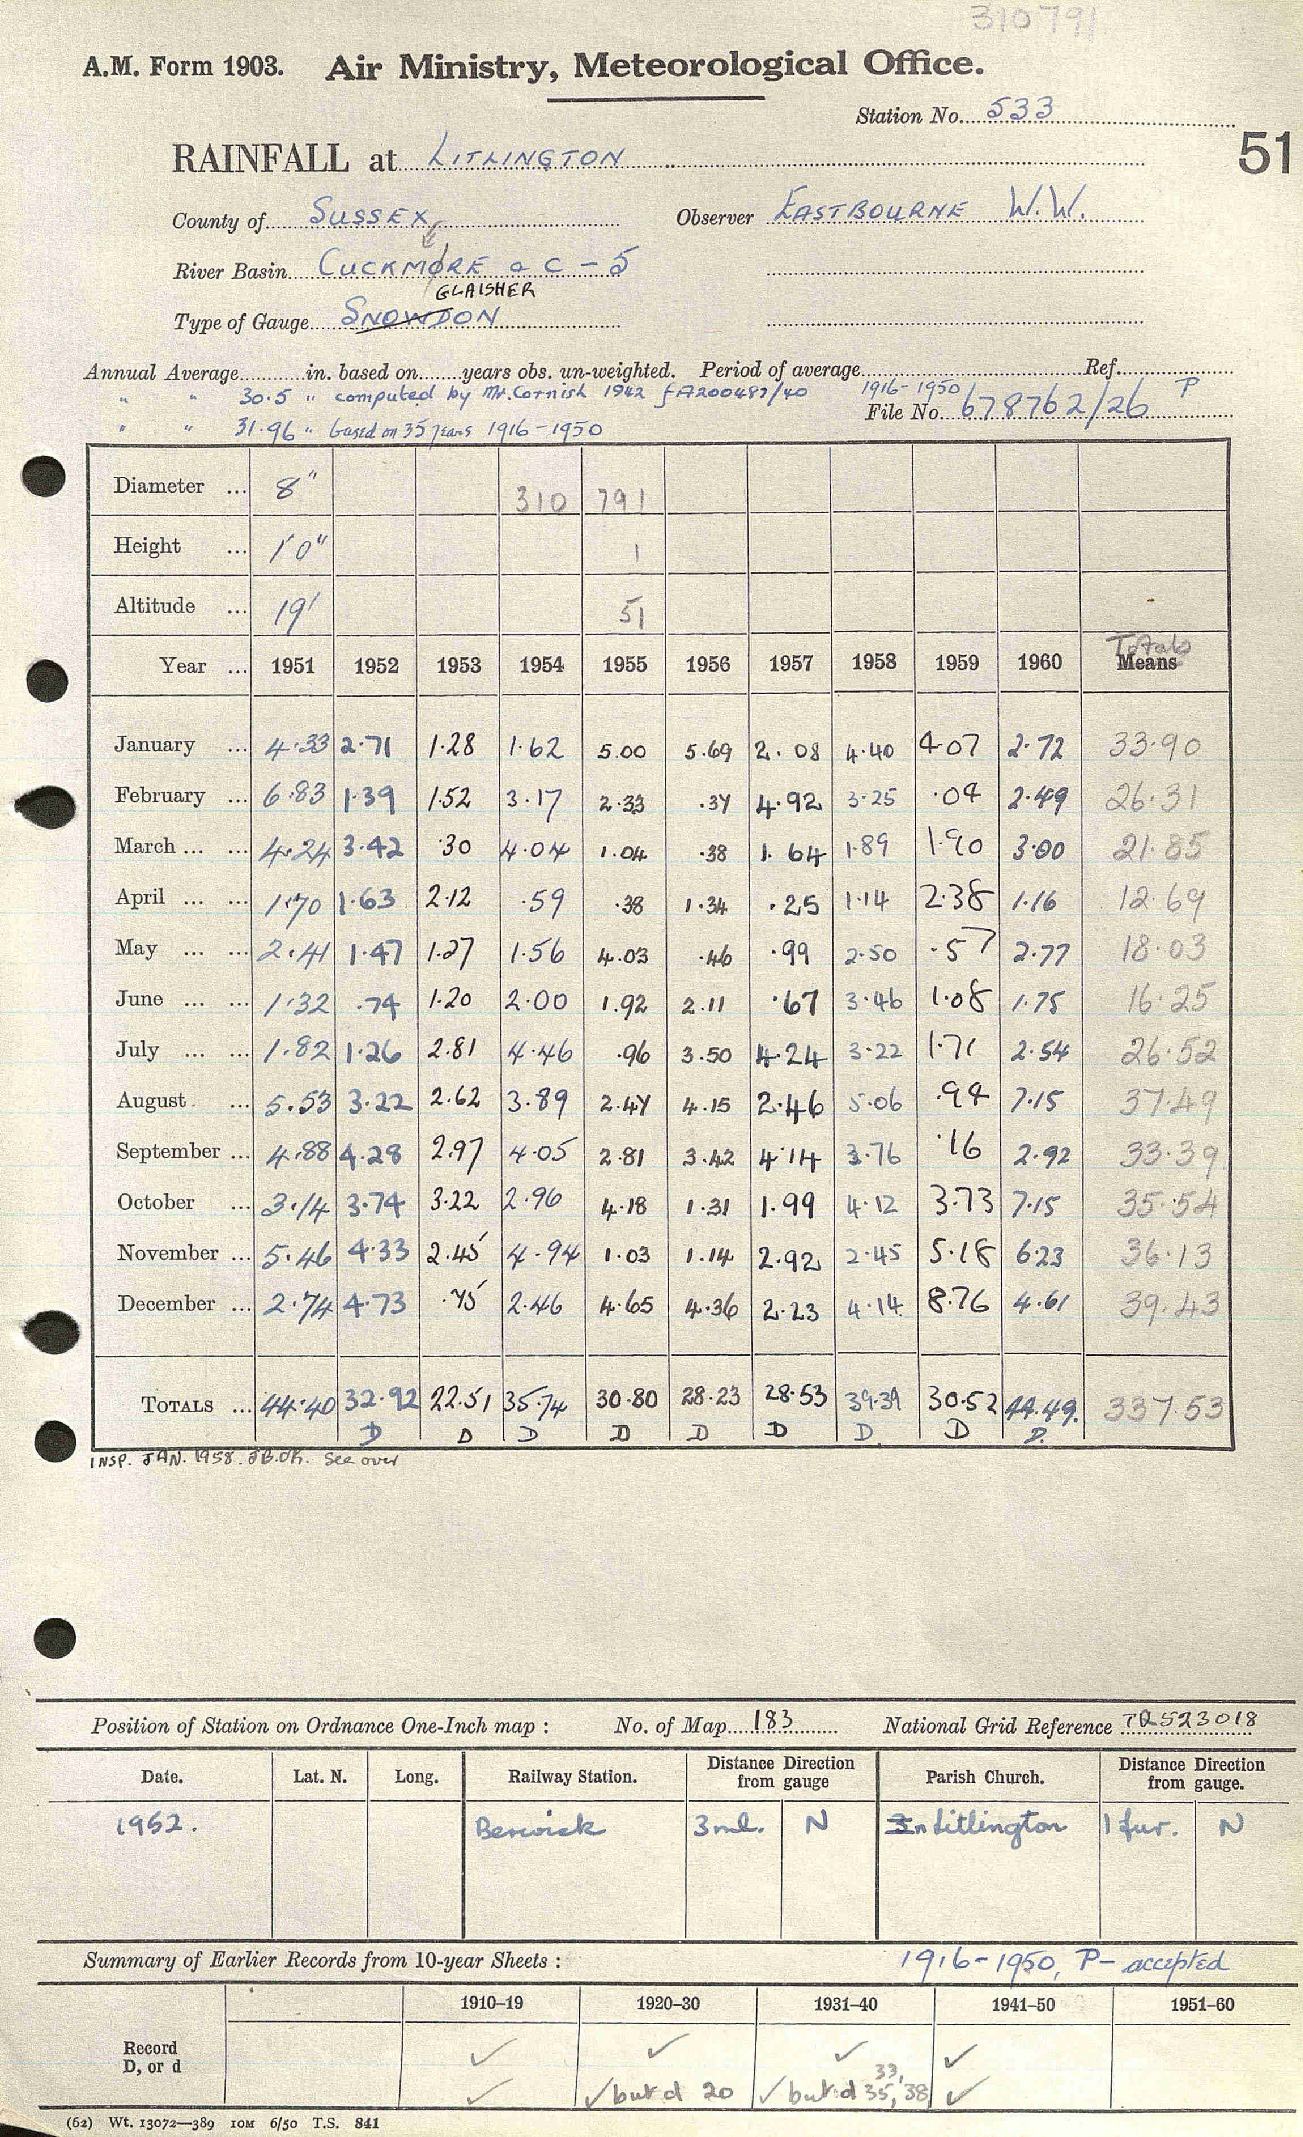 310791
A.M. Form 1903. Air Ministry, Meteorological Office.
Station No. 533
51
RAINFALL at LITLINGTON
County of SUSSEX Observer EASTBOURNE W.W.
River Basin CUCKMORE a C - 5
GLAISHER
Type of Gauge SNOWDON
Annual Average in. based on years obs. un-weighted. Period of average Ref.
" " 30.5 " computed by Mr. Cornish 1942 f A200487/40 1916-1950 P
File No. 678762/26
" " 31.96 " based on 35 years 1916-1950
Diameter ... 8" 310 791
Height ... 1'0" 1
Altitude ... 19' 51
Totals
Year ... 1951 1952 1953 1954 1955 1956 1957 1958 1959 1960 Means
January ... 4.33 2.71 1.28 1.62 5.00 5.69 2.08 4.40 4.07 2.72 33.90
February ... 6.83 1.39 1.52 3.17 2.33 .37 4.92 3.25 .04 2.49 26.31
March ... ... 4.24 3.42 .30 4.04 1.04 .38 1.64 1.89 1.90 3.00 21.85
April ... ... 1.70 1.63 2.12 .59 .38 1.34 .25 1.14 2.38 1.16 12.69
May ... ... 2.41 1.47 1.27 1.56 4.03 .46 .99 2.50 .57 2.77 18.03
June ... ... 1.32 .74 1.20 2.00 1.92 2.11 .67 3.46 1.08 1.75 16.25
July ... ... 1.82 1.26 2.81 4.46 .96 3.50 4.24 3.22 1.71 2.54 26.52
August ... 5.53 3.22 2.62 3.89 2.47 4.15 2.46 5.06 .94 7.15 37.49
September ... 4.88 4.28 2.97 4.05 2.81 3.42 4.14 3.76 .16 2.92 33.39
October ... 3.14 3.74 3.22 2.96 4.18 1.31 1.99 4.12 3.73 7.15 35.54
November ... 5.46 4.33 2.45 4.94 1.03 1.14 2.92 2.45 5.18 6.23 36.13
December ... 2.74 4.73 .75 2.46 4.65 4.36 2.23 4.14 8.76 4.61 39.43
TOTALS ... 44.40 32.92 22.51 35.74 30.80 28.23 28.53 39.39 30.52 44.49. 337.53
D D D D D D D. D D.
INSP. JAN. 1958. JB.OK. See over
Position of Station on Ordnance One-Inch map : No. of Map 183 National Grid Reference TQ523018
Date. Lat. N. Long. Railway Station. Distance from gauge Direction Parish Church. Distance from gauge. Direction
1952. Berwick 3 ml. N In Litlington 1 fur. N
Summary of Earlier Records from 10-year Sheets : 1916-1950, P- accepted
1910–19 1920–30 1931–40 1941–50 1951–60
Record ✓ ✓ ✓ ✓
33,
D, or d ✓ ✓ but d 20 ✓ but d 35, 38, ✓
(62) Wt. 13072—389 10M 6/50 T.S. 841